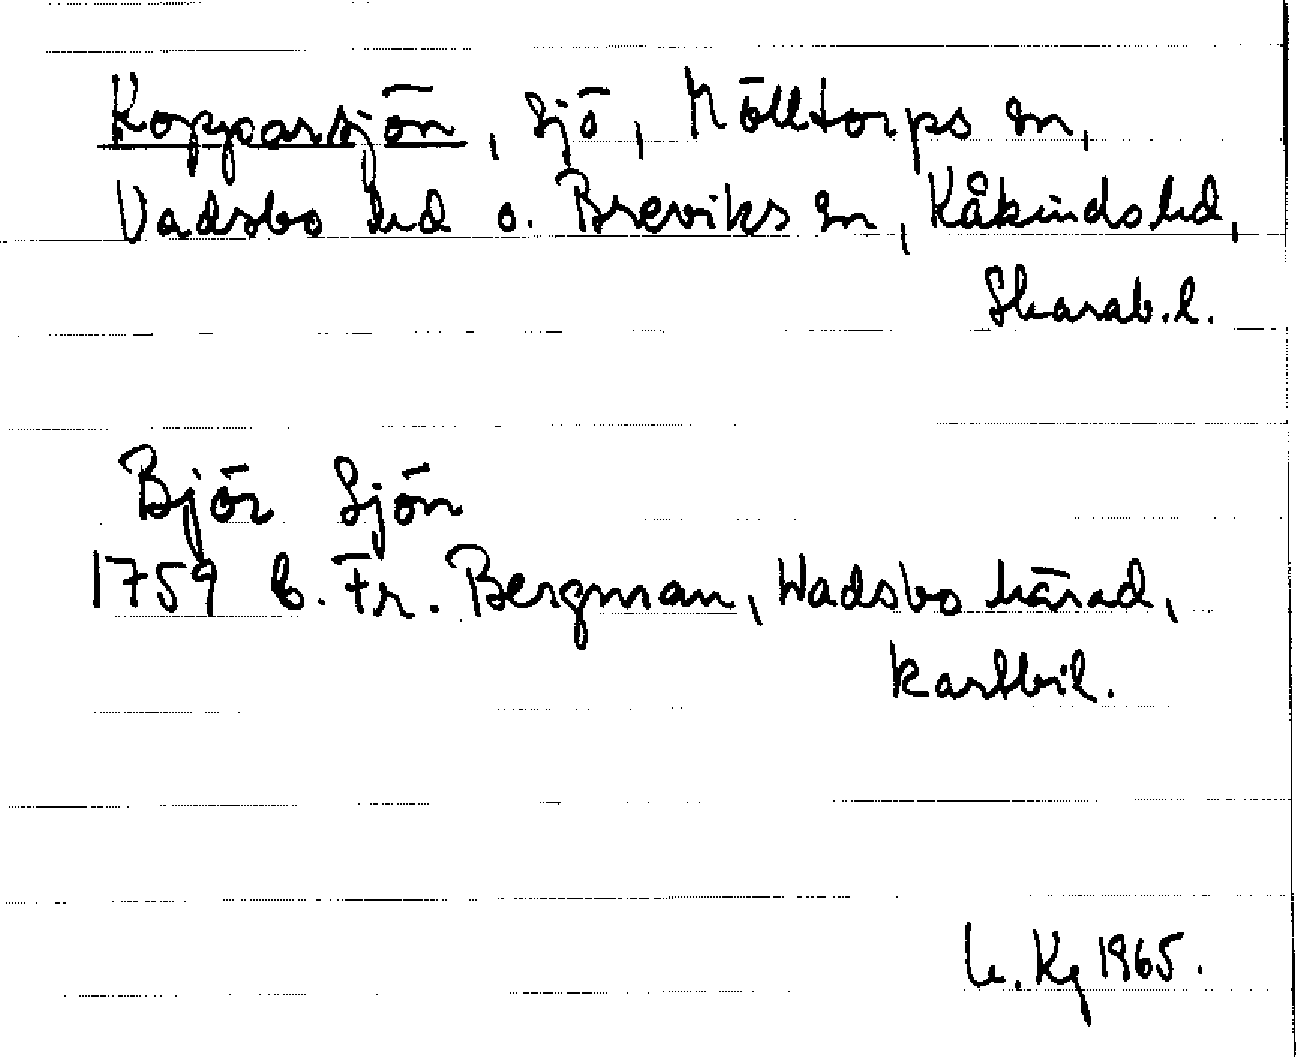 Kopparsjön, sjö, Mölltorps sn,
Vadsbo hd o. Breviks sn, Kåkinds hd,
Skarab. l.
Björ Sjön
1759 C. Fr. Bergman, Wadsbo härad,
kartbil.
1965.